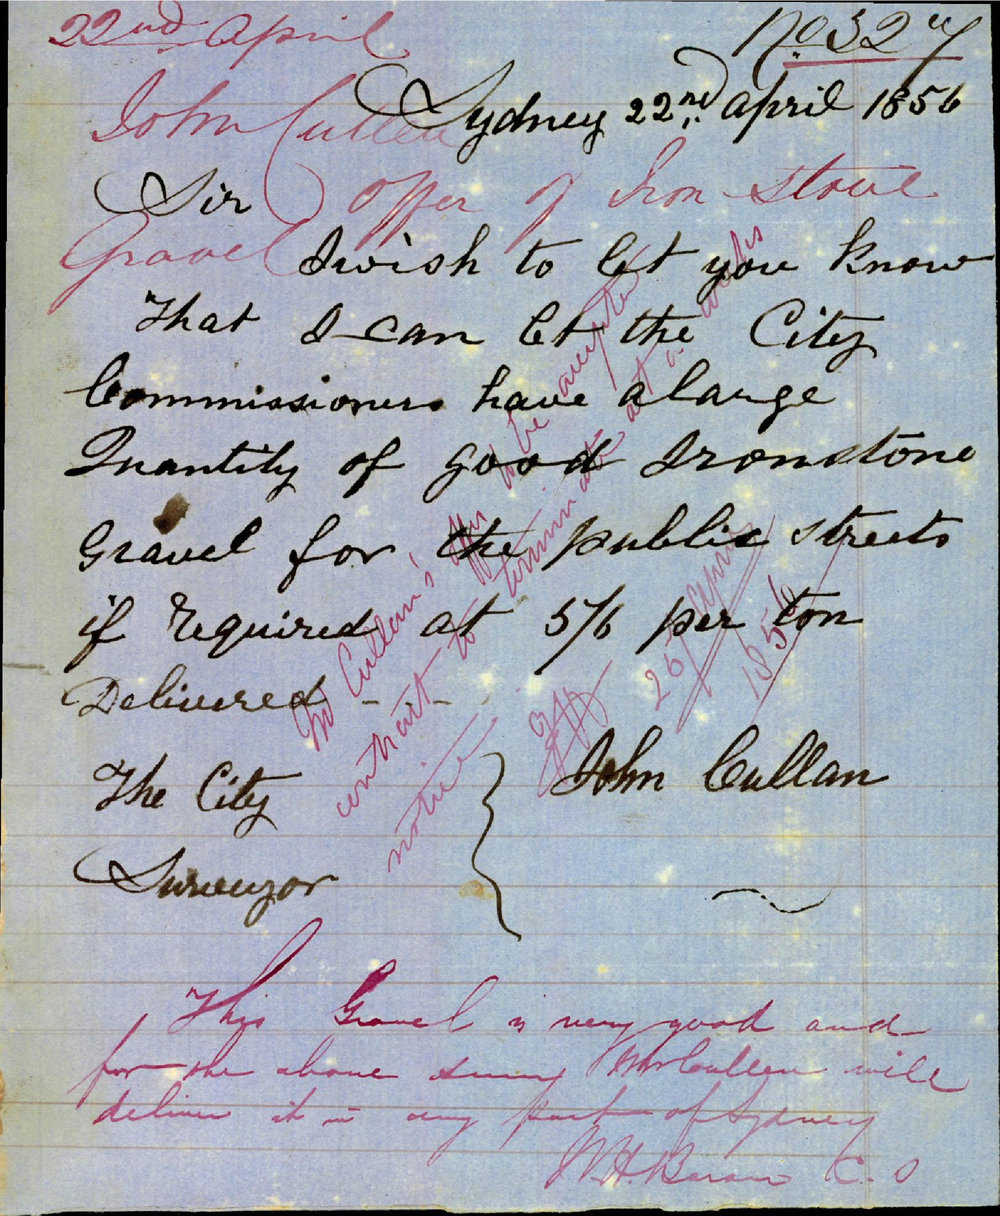 22nd April
No 327
John Cullen
Sydney 22nd April 1856
offer of Iron-stone
Sir
Gravel
I wish to let you know
That I can let the City
Commissioners have a large
Quantity of good Ironstone
Gravel for the public streets
if required at 5/6 per ton
Delivered - -
The City
Surveyor
John Cullan
Mr Cullan's offer to be accepted
contract to terminate at a weeks
notice
25 April
1856
This Gravel is very good and
for the above sum Mr Cullen will
deliver it in any part of Sydney
W. H. C. O